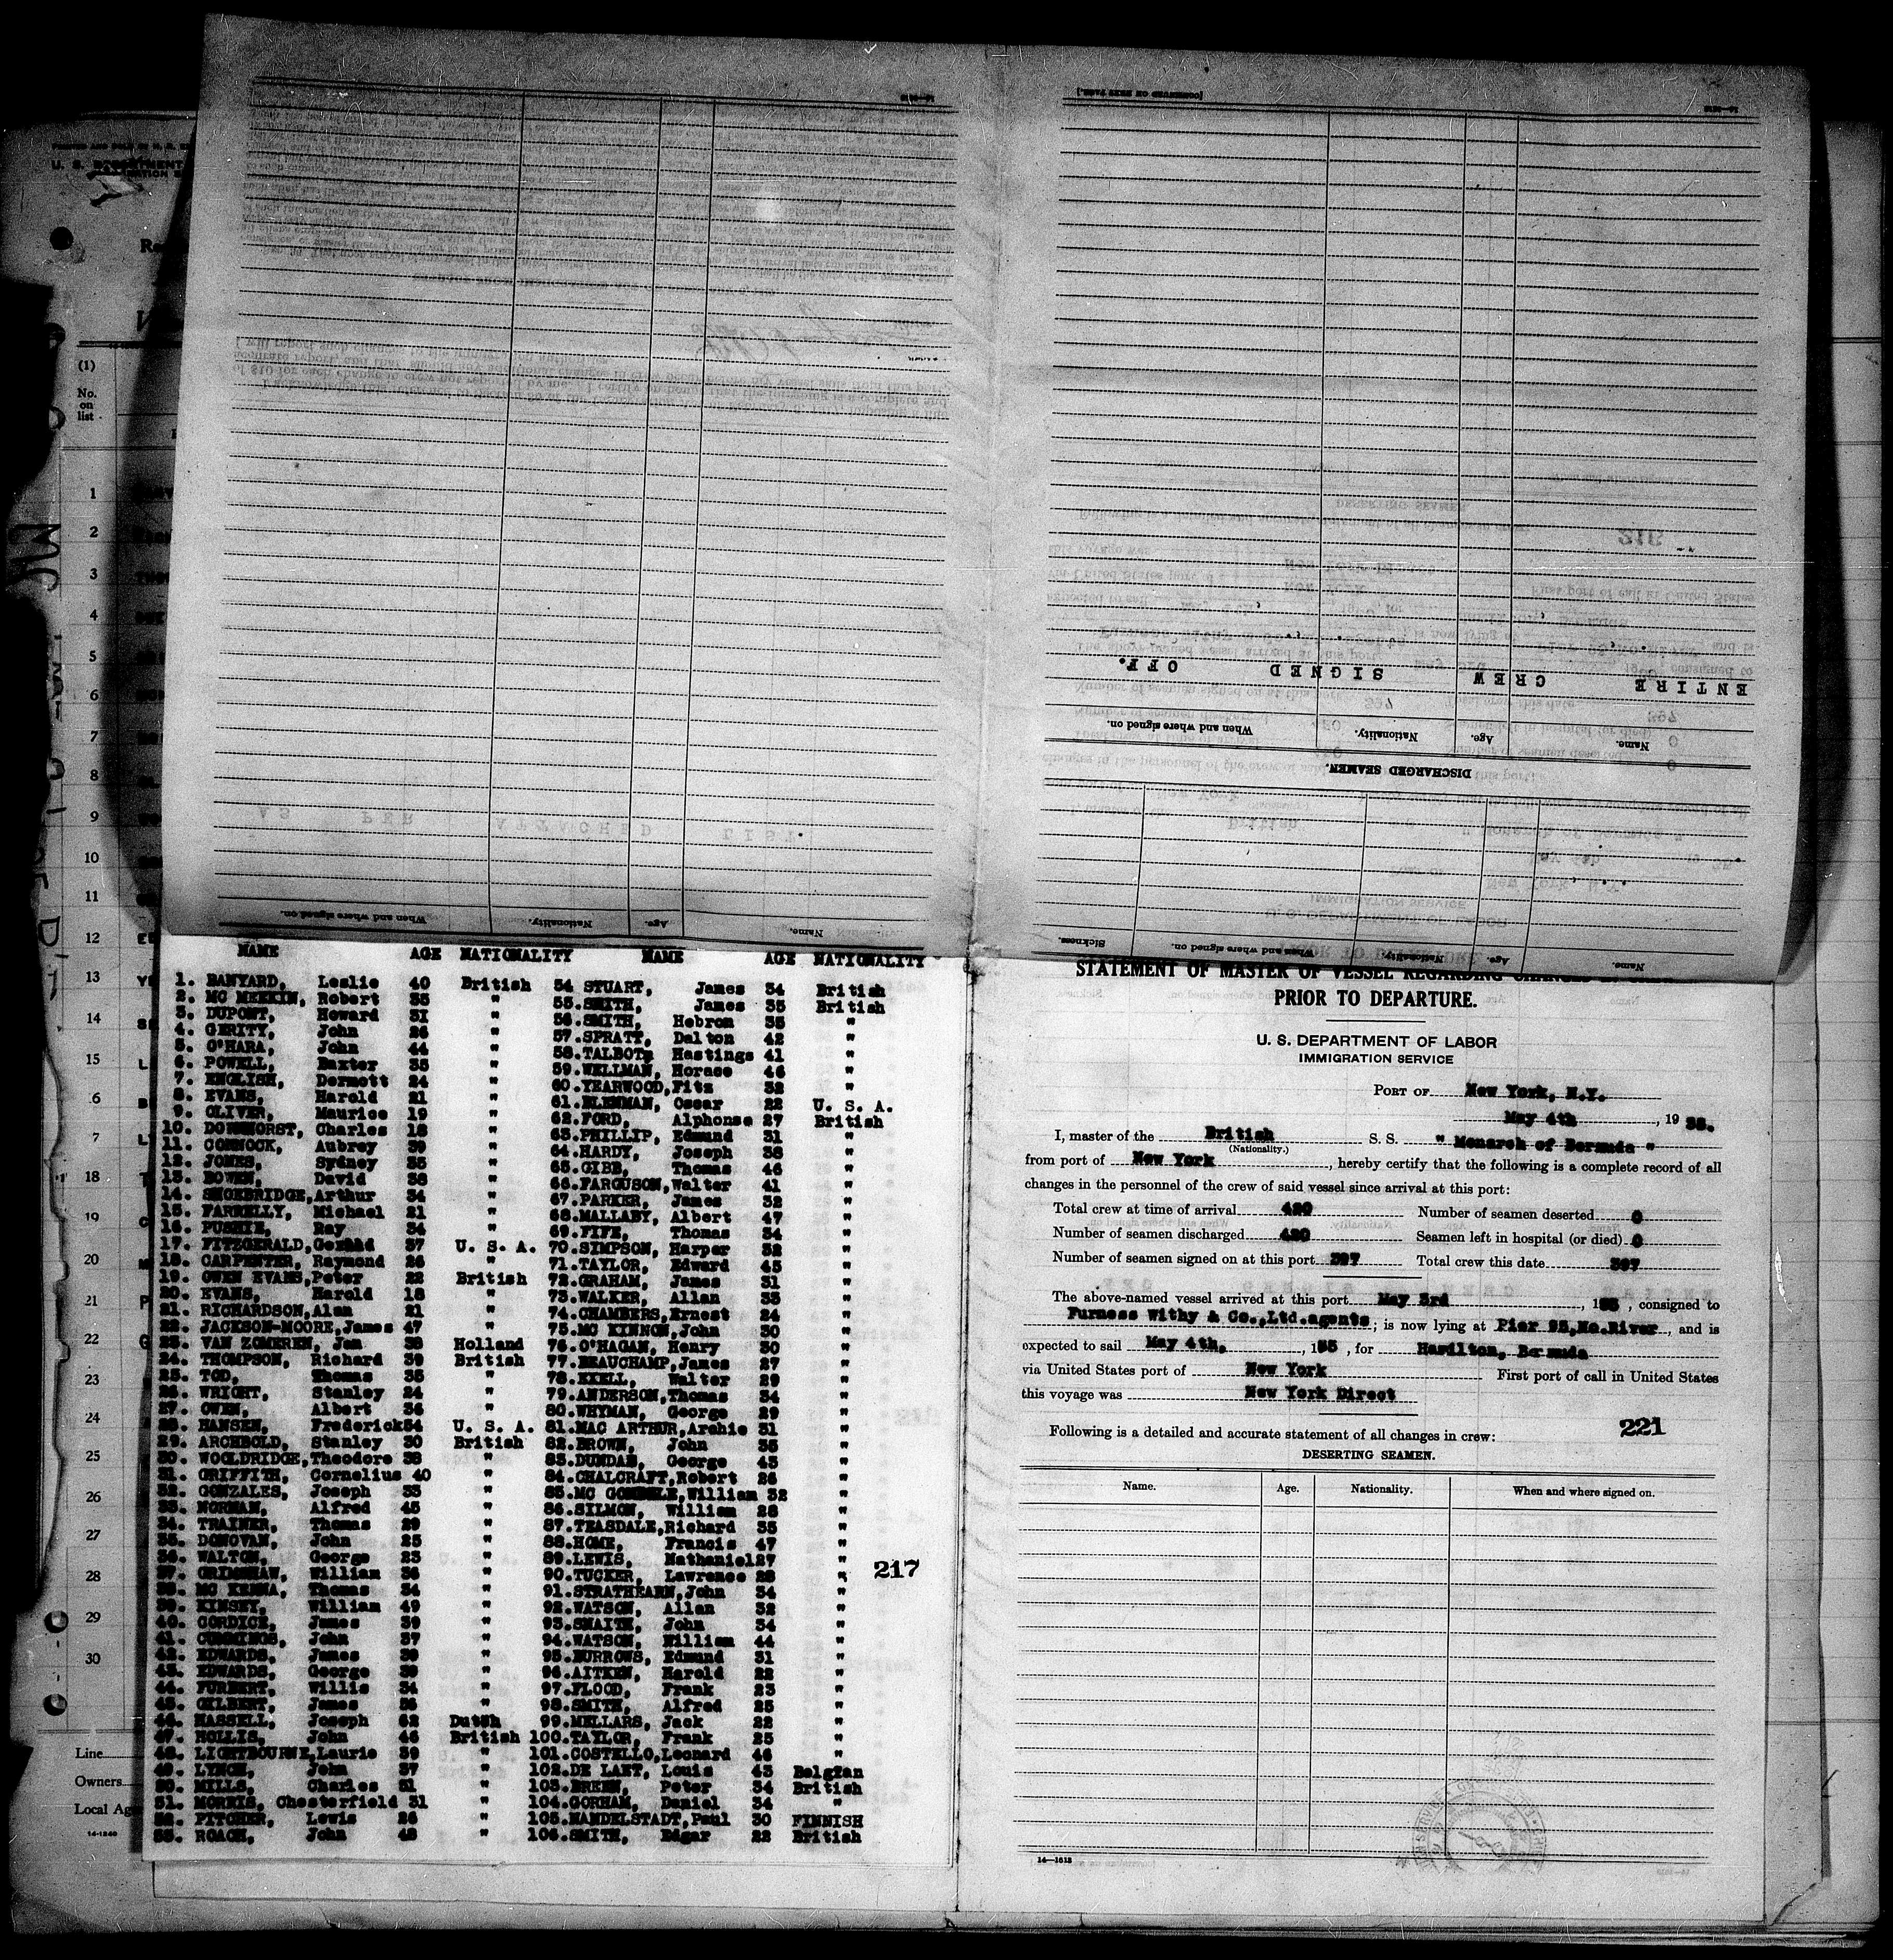 U. S. DEPARTMENT
(1)
No.
on
list
1
2
3
4
5
6
7
8
9
10
11
12
13
14
15
6
7
18
19
20
21
22
23
24
25
26
27
28
29
30
Line
Owners
Local Ag
14-1240
When and where signed on. Nationality. Age. Name.
ENTIRE CREW SIGNED OFF.
Name. Age. Nationality. When and where signed on.
DISCHARGED SEAMEN.
Name. Age. Nationality. When and where signed on. Sickness.
AS PER ATTACHED LIST
NAME AGE NATIONALITY NAME AGE NATIONALITY
1. BANYARD, Leslie 40 British 54 STUART, James 34 British
2. MC MEEKIN, Robert 35 " 55.SMITH, James 35 British
3. DUPONT, Howard 31 " 56.SMITH, Hebron 35 "
4. GERITY, John 26 " 57.SPRATT, Dalton 42 "
5. O'HARA, John 44 " 58.TALBOT, Hastings 41 "
6. POWELL, Baxter 35 " 59.WELLMAN, Horace 46 "
7. ENGLISH, Dermott 24 " 60.YEARWOOD,Fitz 32 "
8. EVANS, Harold 21 " 61.BLENMAN, Oscar 22 U. S. A.
9. OLIVER, Maurice 19 " 62.FORD, Alphonse 27 British
10. Charles 18 " 63.PHILLIP, Edmund 31 "
11. CONNOCK, Aubrey 39 " 64.HARDY, Joseph 38 "
12. JONES, Sydney 35 " 65.GIBB, Thomas 46 "
13. BOWEN, David 38 " 66.FARGUSON,Walter 41 "
14. SHOEBRIDGE,Arthur 34 " 67.PARKER, James 32 "
15. FARRELLY, Michael 21 " 68.MALLABY, Albert 47 "
16. PUSHIE, Ray 34 " 69.FIFE, Thomas 34 "
17. FITZGERALD,Gerald 37 U. S. A. 70.SIMPSON, Harper 32 "
18. CARPENTER, Raymond 26 " 71.TAYLOR, Edward 45 "
19. OWEN EVANS,Peter 22 British 72.GRAHAM, James 31 "
20. EVANS, Harold 18 " 73.WALKER, Allan 33 "
21. RICHARDSON,Alan 21 " 74.CHAMBERS,Ernest 24 "
22. JACKSON-MOORE,James 47 " 75.MC KINNON,John 30 "
23. VAN ZOMEREN, Jan 38 Holland 76.O'HAGAN, Henry 30 "
24. THOMPSON, Richard 39 British 77.BEAUCHAMP,James 27 "
25. TOD, Thomas 35 " 78.EXELL, Walter 29 "
26. WRIGHT, Stanley 24 " 79.ANDERSON,Thomas 34 "
27. OWEN, Albert 36 " 80.WHYMAN, George 29 "
28. HANSEN, Frederick 54 U. S. A. 81.MAC ARTHUR,Archie 31 "
29. ARCHBOLD, Stanley 30 British 82.BROWN, John 35 "
30. WOOLDRIDGE,Theodore 38 " 83.DUNDAS, George 43 "
31. GRIFFITH, Cornelius 40 " 84.CHALCRAFT,Robert 26 "
32. GONZALES, Joseph 33 " 85.MC William 32 "
33. NORMAN, Alfred 45 " 86.SILMON, William 28 "
34. TRAINER, Thomas 29 " 87.TEASDALE,Richard 35 "
35. DONOVAN, John 25 " 88.HOME, Francis 47 "
36. WALTON, George 23 " 89.LEWIS, Nathaniel27 "
37. GRIMSHAW, William 36 " 90.TUCKER, Lawrence 28 "
38. MC KENNA, Thomas 34 " 91.STRATHEARN,John 34 "
39. KINSEY, William 49 " 92.WATSON, Allan 32 "
40. CORDICE, James 39 " 93.SNAITH, John 34 "
41. CUMMINGS, John 37 " 94.WATSON, William 44 "
42. EDWARDS, James 39 " 95.BURROWS, Edmund 31 "
43. EDWARDS, George 39 " 96.AITKEN, Harold 22 "
44. FURBERT, Willis 34 " 97.FLOOD, Frank 23 "
45. GILBERT, James 36 " 98.SMITH, Alfred 25 "
46. HASSELL, Joseph 62 Dutch 99.MELLARS, Jack 22 "
47. HOLLIS, John 46 British 100.TAYLOR, Frank 25 "
48. LIGHTBOURNE,Laurie 39 " 101.COSTELLO,Leonard 46 "
49. LYNCH, John 37 " 102.DE LAET, Louis 43 Belgian
50. MILLS, Charles 51 " 103.BREEN, Peter 34 British
51. MORRIS, Chesterfield 31 " 104.GORHAM, Daniel 34 "
52. PITCHER, Lewis 26 " 105.MANDELSTADT,Paul 30 FINNISH
53. ROACH, John 48 " 106.SMITH, Edgar 22 British
217
STATEMENT OF MASTER OF VESSEL REGARDING CHANGES IN CREW
PRIOR TO DEPARTURE.
U. S. DEPARTMENT OF LABOR
IMMIGRATION SERVICE
PORT OF New York, N.Y.
May 4th, 19 35.
I, master of the British S. S. " Monarch of Bermuda "
(Nationality.)
from port of New York, hereby certify that the following is a complete record of all
changes in the personnel of the crew of said vessel since arrival at this port:
Total crew at time of arrival 420 Number of seamen deserted 0
Number of seamen discharged 420 Seamen left in hospital (or died) 0
Number of seamen signed on at this port 397 Total crew this date 397
The above-named vessel arrived at this port May 3rd, 1935, consigned to
Furness Withy & Co.,Ltd.agents; is now lying at Pier 95,No.River, and is
expected to sail May 4th, , 135 , for Hamilton, Bermuda
via United States port of New York First port of call in United States
this voyage was New York Direct
221
Following is a detailed and accurate statement of all changes in crew:
DESERTING SEAMEN.
Name. Age. Nationality. When and where signed on.
14—1613